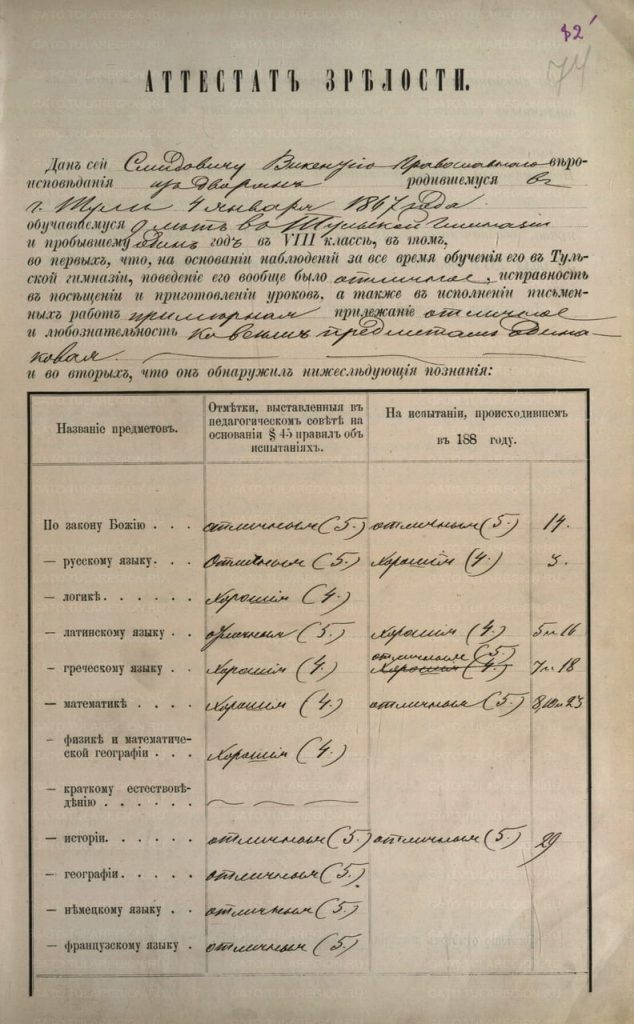 82
74
АТТЕСТАТЪ ЗРѢЛОСТИ.
Данъ сей Смидовичу Викентію Православнаго вѣро-
исповѣданія изъ дворянъ родившемуся въ
г. Тулѣ 4 января 1867 года
обучавшемуся 9 лѣтъ въ Тульской гимназіи
и пробывшему одинъ годъ въ VIII классѣ, въ томъ,
во первыхъ, что, на основаніи наблюденій за все время обученія его въ Туль-
ской гимназіи, поведеніе его вообще было отличное, исправность
въ посѣщеніи и приготовленіи уроковъ, а также въ исполненіи письмен-
ныхъ работъ примѣрная прилежаніе отличное
и любознательность ко всѣмъ предметамъ одина-
ковая.
и во вторыхъ, что онъ обнаружилъ нижеслѣдующія познанія:
Названіе предметовъ. Отмѣтки, выставленныя въ педагогическомъ совѣтѣ на основаніи § 45 правилъ объ испытаніяхъ. На испытаніи, происходившемъ въ 188 году.
По закону Божію . . . отличныя (5.) отличныя (5.) 14.
— русскому языку. . . отличныя (5.) Хорошія (4.) 3.
— логикѣ. . . . . . Хорошія (4.)
— латинскому языку . . отличныя (5.) Хорошія (4.) 5 и 16
отличныя (5.)
— греческому языку . . Хорошія (4.) Хорошія (4.) 7 и 18
— математикѣ . . . . Хорошія (4.) отличныя (5.) 8, 10 и 23
— физикѣ и математиче-
ской географіи . . . Хорошія (4.)
— краткому естествовѣ-
дѣнію . . . . . .
— исторіи. . . . . . отличныя (5.) отличныя (5.) 29
— географіи. . . . . отличныя (5.)
— нѣмецкому языку . . отличныя (5.)
— французскому языку . отличныя (5.)